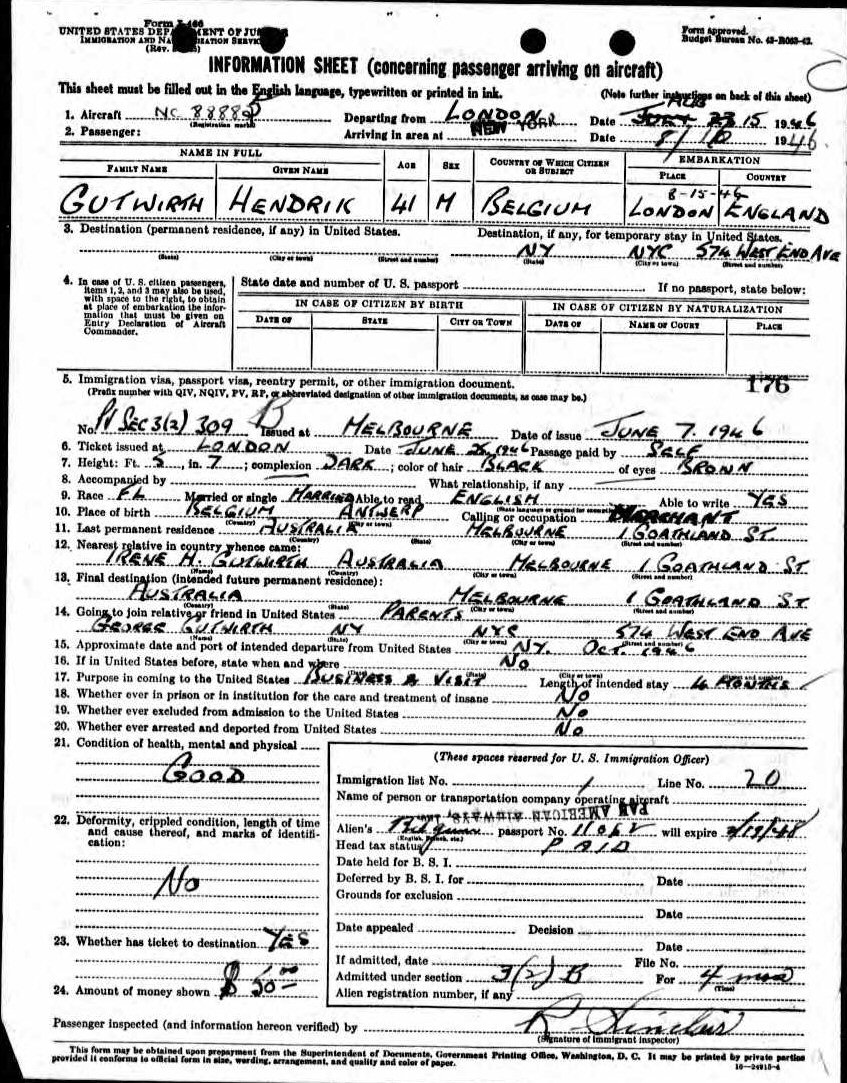 Form I-466
UNITED STATES DEPARTMENT OF JUSTICE
IMMIGRATION AND NATURALIZATION SERVICE
(Rev.
Form approved.
Budget Bureau No. 43-R063-43.
INFORMATION SHEET (concerning passenger arriving on aircraft)
This sheet must be filled out in the English language, typewritten or printed in ink. (Note further instructions on back of this sheet)
1. Aircraft NC 88882 Departing from LONDON Date AUG 15 1946
(Registration marks)
2. Passenger: Arriving in area at NEW YORK Date 8/16 1946.
NAME IN FULL AGE SEX COUNTRY OF WHICH CITIZEN OR SUBJECT EMBARKATION
FAMILY NAME GIVEN NAME PLACE COUNTRY
8-15-46
GUTWIRTH HENDRIK 41 M BELGIUM LONDON ENGLAND
3. Destination (permanent residence, if any) in United States. Destination, if any, for temporary stay in United States.
NY NYC 574 WEST END AVE
(State) (City or town) (Street and number) (State) (City or town) (Street and number)
4. In case of U. S. citizen passengers, items 1, 2, and 3 may also be used, with space to the right, to obtain at place of embarkation the information that must be given on Entry Declaration of Aircraft Commander.
State date and number of U. S. passport If no passport, state below:
IN CASE OF CITIZEN BY BIRTH IN CASE OF CITIZEN BY NATURALIZATION
DATE OF STATE CITY OR TOWN DATE OF NAME OF COURT PLACE
5. Immigration visa, passport visa, reentry permit, or other immigration document. 176
(Prefix number with QIV, NQIV, PV, RP, or abbreviated designation of other immigration documents, as case may be.)
No. PV SEC 3(2) 309 B Issued at MELBOURNE Date of issue JUNE 7. 1946
6. Ticket issued at LONDON Date JUNE 25, 1946 Passage paid by SELF
7. Height: Ft. 5, in. 7; complexion DARK; color of hair BLACK of eyes BROWN
8. Accompanied by What relationship, if any
9. Race FL Married or single MARRIED Able to read ENGLISH Able to write YES
(State language or ground for exemption)
10. Place of birth BELGIUM ANTWERP Calling or occupation MERCHANT
(Country) (City or town)
11. Last permanent residence AUSTRALIA MELBOURNE 1 GOATHLAND ST.
(Country) (State) (City or town) (Street and number)
12. Nearest relative in country whence came:
IRENE H. GUTWIRTH AUSTRALIA MELBOURNE 1 GOATHLAND ST
(Name) (Country) (City or town) (Street and number)
13. Final destination (intended future permanent residence):
AUSTRALIA MELBOURNE 1 GOATHLAND ST
(Country) (State) (City or town) (Street and number)
14. Going to join relative or friend in United States PARENTS
GEORGE GUTWIRTH NY NYC 574 WEST END AVE
(Name) (State) (City or town) (Street and number)
15. Approximate date and port of intended departure from United States NY. OCT. 1946
16. If in United States before, state when and where NO
(State) (City or town) (Street and number)
17. Purpose in coming to the United States BUSINESS & VISIT Length of intended stay 4 MONTHS
18. Whether ever in prison or in institution for the care and treatment of insane NO
19. Whether ever excluded from admission to the United States NO
20. Whether ever arrested and deported from United States NO
21. Condition of health, mental and physical
GOOD
22. Deformity, crippled condition, length of time and cause thereof, and marks of identification:
NO
23. Whether has ticket to destination YES
24. Amount of money shown $ 50
(These spaces reserved for U. S. Immigration Officer)
Immigration list No. 1 Line No. 20
Name of person or transportation company operating aircraft
PAN AMERICAN AIRWAYS, INC.
Alien's Belgium passport No. 11062 will expire 2/19/48
(English, French, etc.)
Head tax status PAID
Date held for B. S. I.
Deferred by B. S. I. for Date
Grounds for exclusion
Date
Date appealed Decision
Date
If admitted, date File No.
Admitted under section 3(2) B For 4 mos
(Time)
Alien registration number, if any
Passenger inspected (and information hereon verified) by R. Sinclair
(Signature of immigrant inspector)
This form may be obtained upon prepayment from the Superintendent of Documents, Government Printing Office, Washington, D. C. It may be printed by private parties
provided it conforms to official form in size, wording, arrangement, and quality and color of paper.
16—24915-4